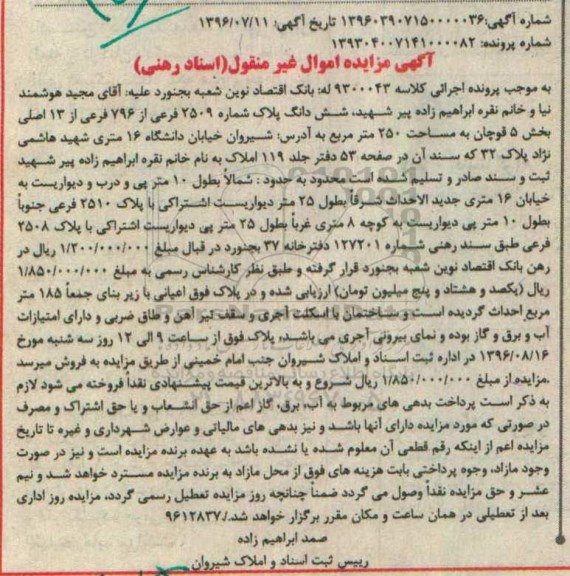 شماره آگهی:۱۳۹۶۰۳۹۰۷۱۵۰۰۰۰۰۳۶ تاریخ آگهی: ۱۳۹۶/۰۷/۱۱
شماره پرونده: ۱۳۹۳۰۴۰۰۷۱۴۱۰۰۰۰۸۲
آگهی مزایده اموال غیر منقول(اسناد رهنی)
به موجب پرونده اجرائی کلاسه ۹۳۰۰۰۴۳ له: بانک اقتصاد نوین شعبه بجنورد علیه: آقای مجید هوشمند
نیا و خانم نقره ابراهیم زاده پیر شهید، شش دانگ پلاک شماره ۲۵۰۹ فرعی از ۷۹۶ فرعی از ۱۳ اصلی
بخش ۵ قوچان به مساحت ۲۵۰ متر مربع به آدرس: شیروان خیابان دانشگاه ۱۶ متری شهید هاشمی
نژاد پلاک ۳۲ که سند آن در صفحه ۵۳ دفتر جلد ۱۱۹ املاک به نام خانم نقره ابراهیم زاده پیر شهید
ثبت و سند صادر و تسلیم شده است محدود به حدود : شمالاً بطول ۱۰ متر پی و درب و دیواریست به
خیابان ۱۶ متری جدید الاحداث شرقاً بطول ۲۵ متر دیواریست اشتراکی با پلاک ۲۵۱۰ فرعی جنوباً
بطول ۱۰ متر پی دیواریست به کوچه ۸ متری غرباً بطول ۲۵ متر پی دیواریست اشتراکی با پلاک ۲۵۰۸
فرعی طبق سند رهنی شماره ۱۲۷۲۰۱ دفترخانه ۳۷ بجنورد در قبال مبلغ ۱/۲۰۰/۰۰۰/۰۰۰ ریال در
رهن بانک اقتصاد نوین شعبه بجنورد قرار گرفته و طبق نظر کارشناس رسمی به مبلغ ۱/۸۵۰/۰۰۰/۰۰۰
ریال (یکصد و هشتاد و پنج میلیون تومان) ارزیابی شده و در پلاک فوق اعیانی با زیر بنای جمعاً ۱۸۵ متر
مربع احداث گردیده است و ساختمان با اسکلت آجری و سقف تیر آهن و طاق ضربی و دارای امتیازات
آب و برق و گاز بوده و نمای بیرونی آجری می باشد، پلاک فوق از ساعت ۹ الی ۱۲ روز سه شنبه مورخ
۱۳۹۶/۰۸/۱۶ در اداره ثبت اسناد و املاک شیروان جنب امام خمینی از طریق مزایده به فروش میرسد
.مزایده از مبلغ ۱/۸۵۰/۰۰۰/۰۰۰ ریال شروع و به بالاترین قیمت پیشنهادی نقداً فروخته می شود لازم
به ذکر است پرداخت بدهی های مربوط به آب، برق، گاز اعم از حق انشعاب و یا حق اشتراک و مصرف
در صورتی که مورد مزایده دارای آنها باشد و نیز بدهی های مالیاتی و عوارض شهرداری و غیره تا تاریخ
مزایده اعم از اینکه رقم قطعی آن معلوم شده یا نشده باشد به عهده برنده مزایده است و نیز در صورت
وجود مازاد، وجوه پرداختی بابت هزینه های فوق از محل مازاد به برنده مزایده مسترد خواهد شد و نیم
عشر و حق مزایده نقداً وصول می گردد ضمناً چنانچه روز مزایده تعطیل رسمی گردد، مزایده روز اداری
بعد از تعطیلی در همان ساعت و مکان مقرر برگزار خواهد شد./۹۶۱۲۸۳۷
صمد ابراهیم زاده
رییس ثبت اسناد و املاک شیروان